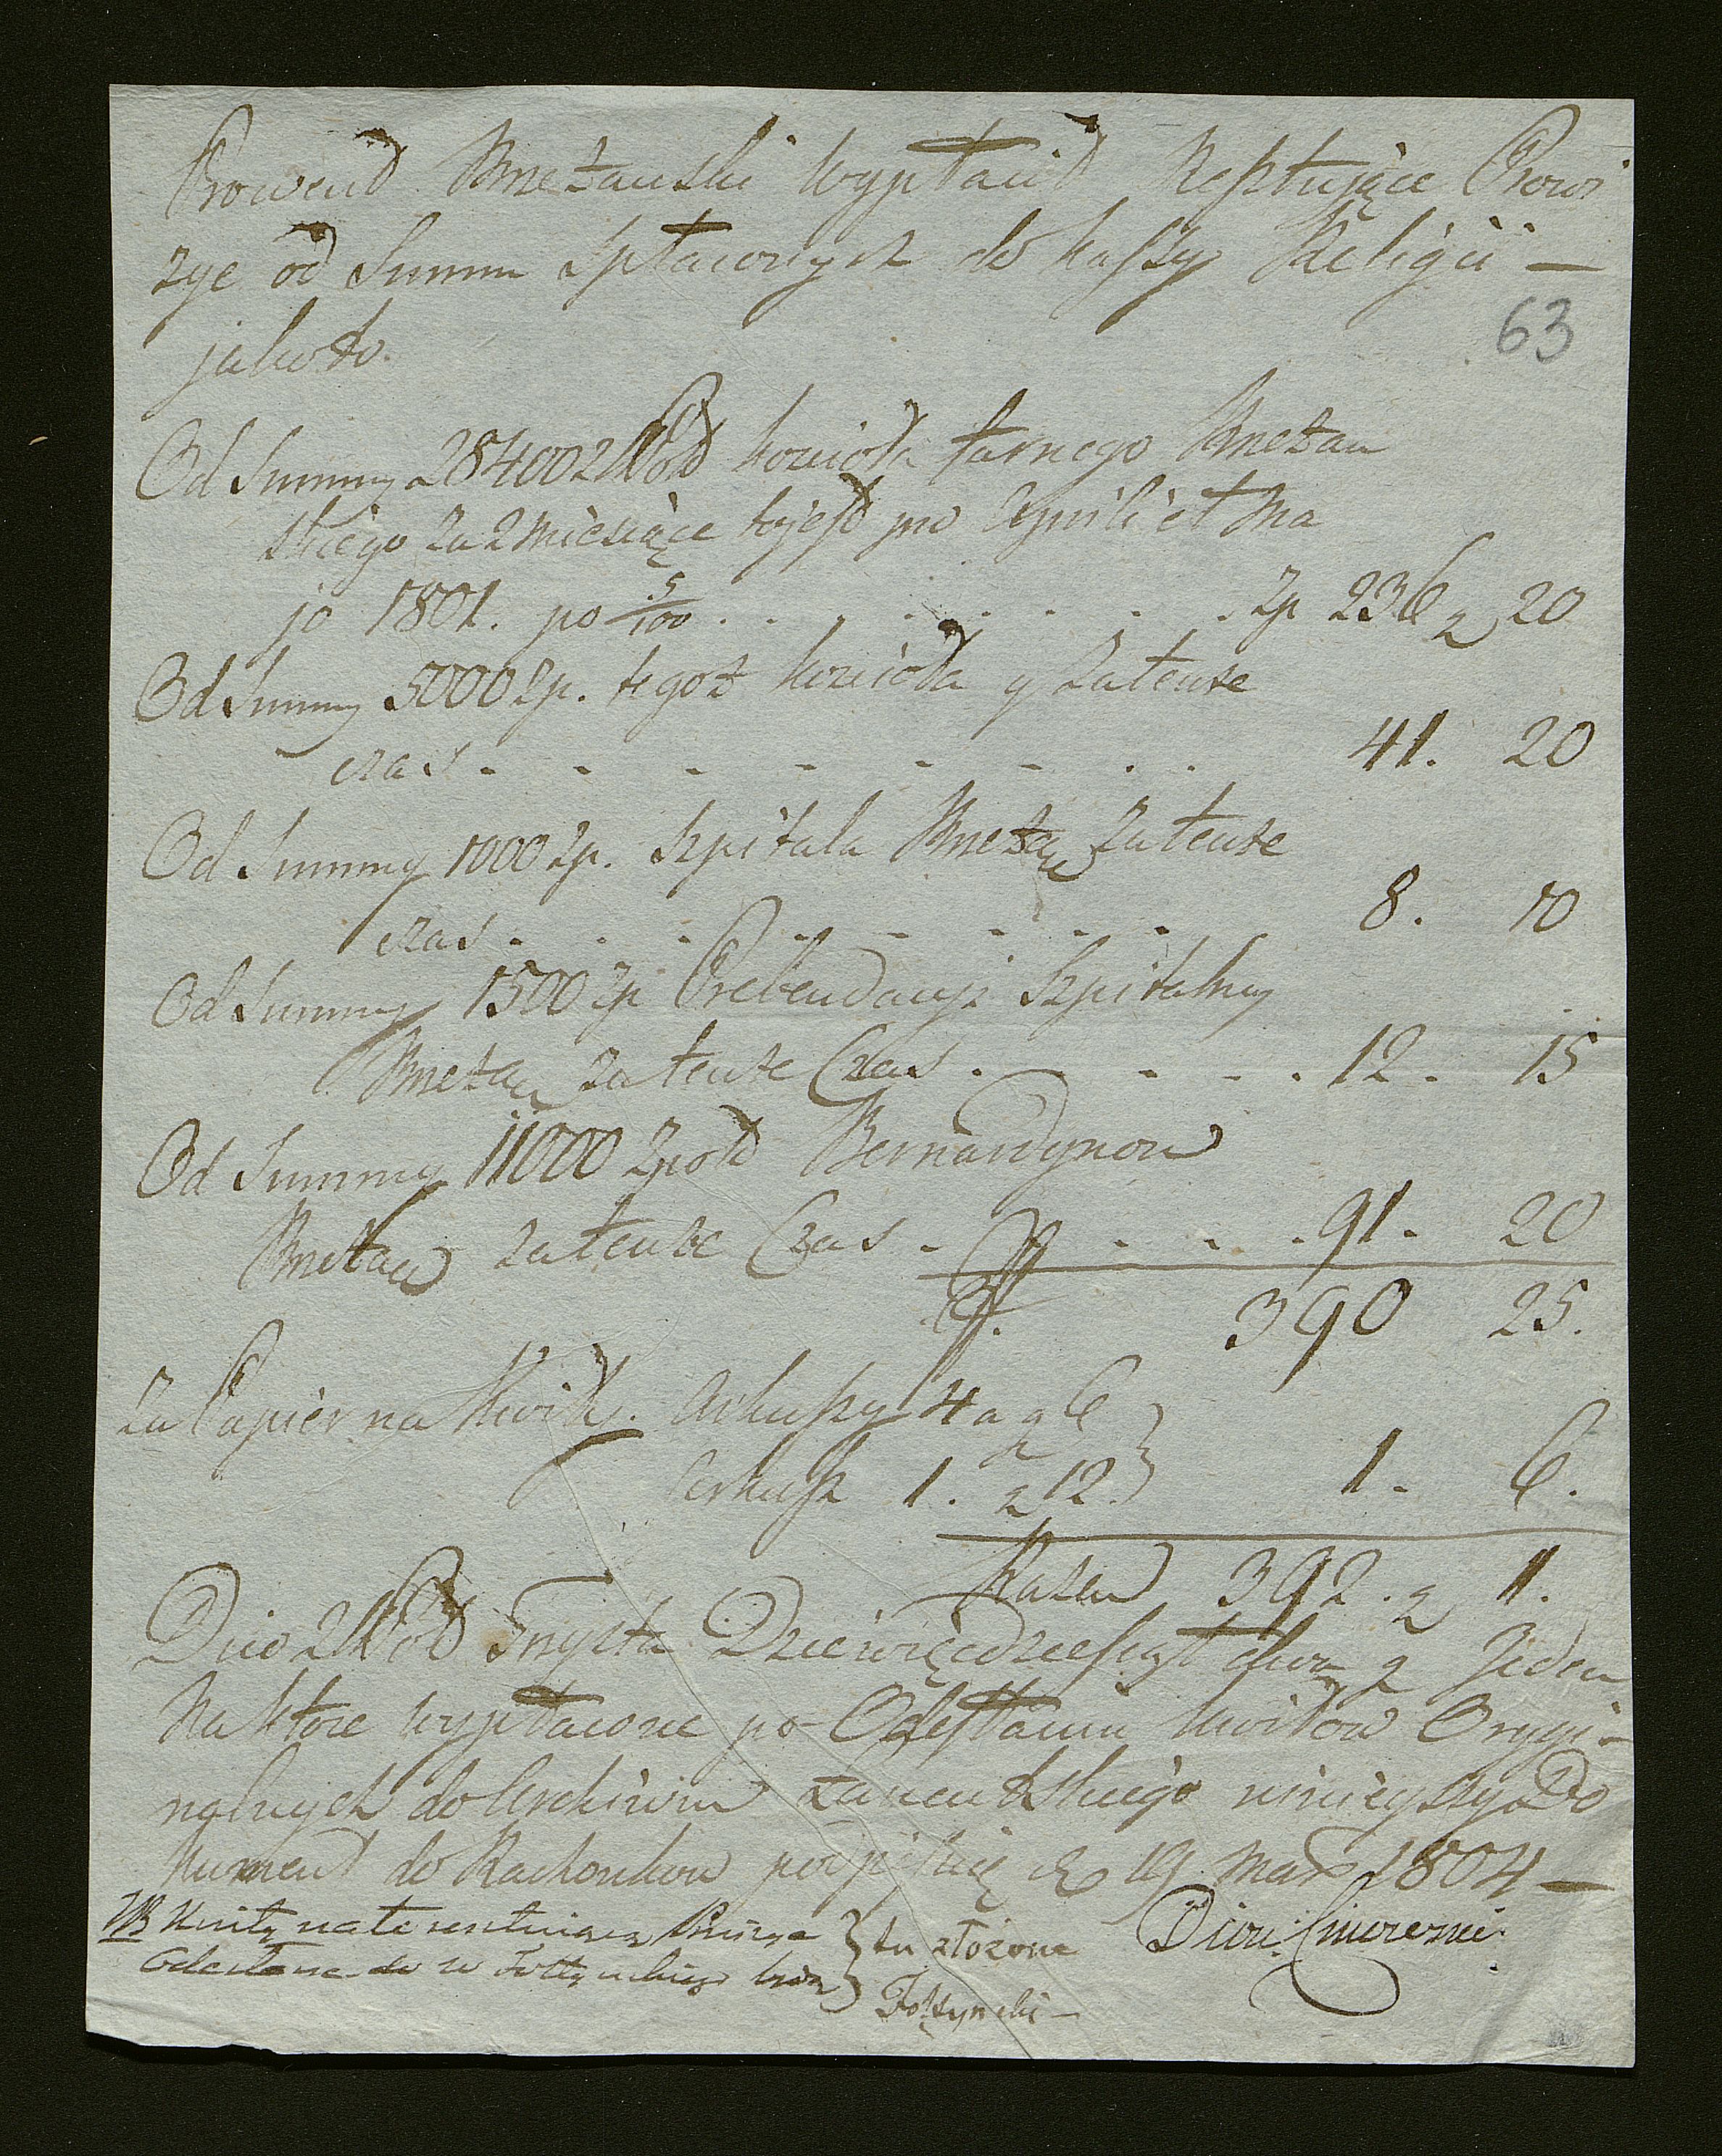 Prowent Knežauski wypłacił Resztujące Prowi
zye od Summ Spłaconych do kaszy Religii —
jakoto.
63
Od Summy 28400 Złłpol kościoła farnego Knežau
skiego za 2 miesiące tojest pro Aprili et Ma
jo 1801. po 5/100 . . . . . . . . zp 236 g 20
Od Summy 5000 zp. tegoż kościoła y zatenże
czas - - - - - - - . . 41. 20
Od Summy 1000 zp. Szpitala Knežau zatenże
czas - - - - - - - - 8. 10
Od Summy 1500 zp Prebendaryi Szpitalney
Knežau zatenże Czas . - - - - . 12 - 15
Od Summy 11000 zpold Bernardynow
Knežau zatenże Czas - - - - . 91 - 20
390 25.
za Papier na Kwity. Arkuszy 4 a g 6
Arkusz 1. g 12. } 1 - 6.
Razem 392. g 1.
Dico Złłpol Trzysta Dziewięcdzesiąt dwa g Jeden
Na ktore wypłacone po Odesłaniu kwitow Orygi-
nalnych do Archiwum niniejszy Do
kument do Rachonkow podpisuię d 19 Mar 1804 —
NB Kwity na te
odesłane do w Foltynskiego } tu złożone
Foltynski —